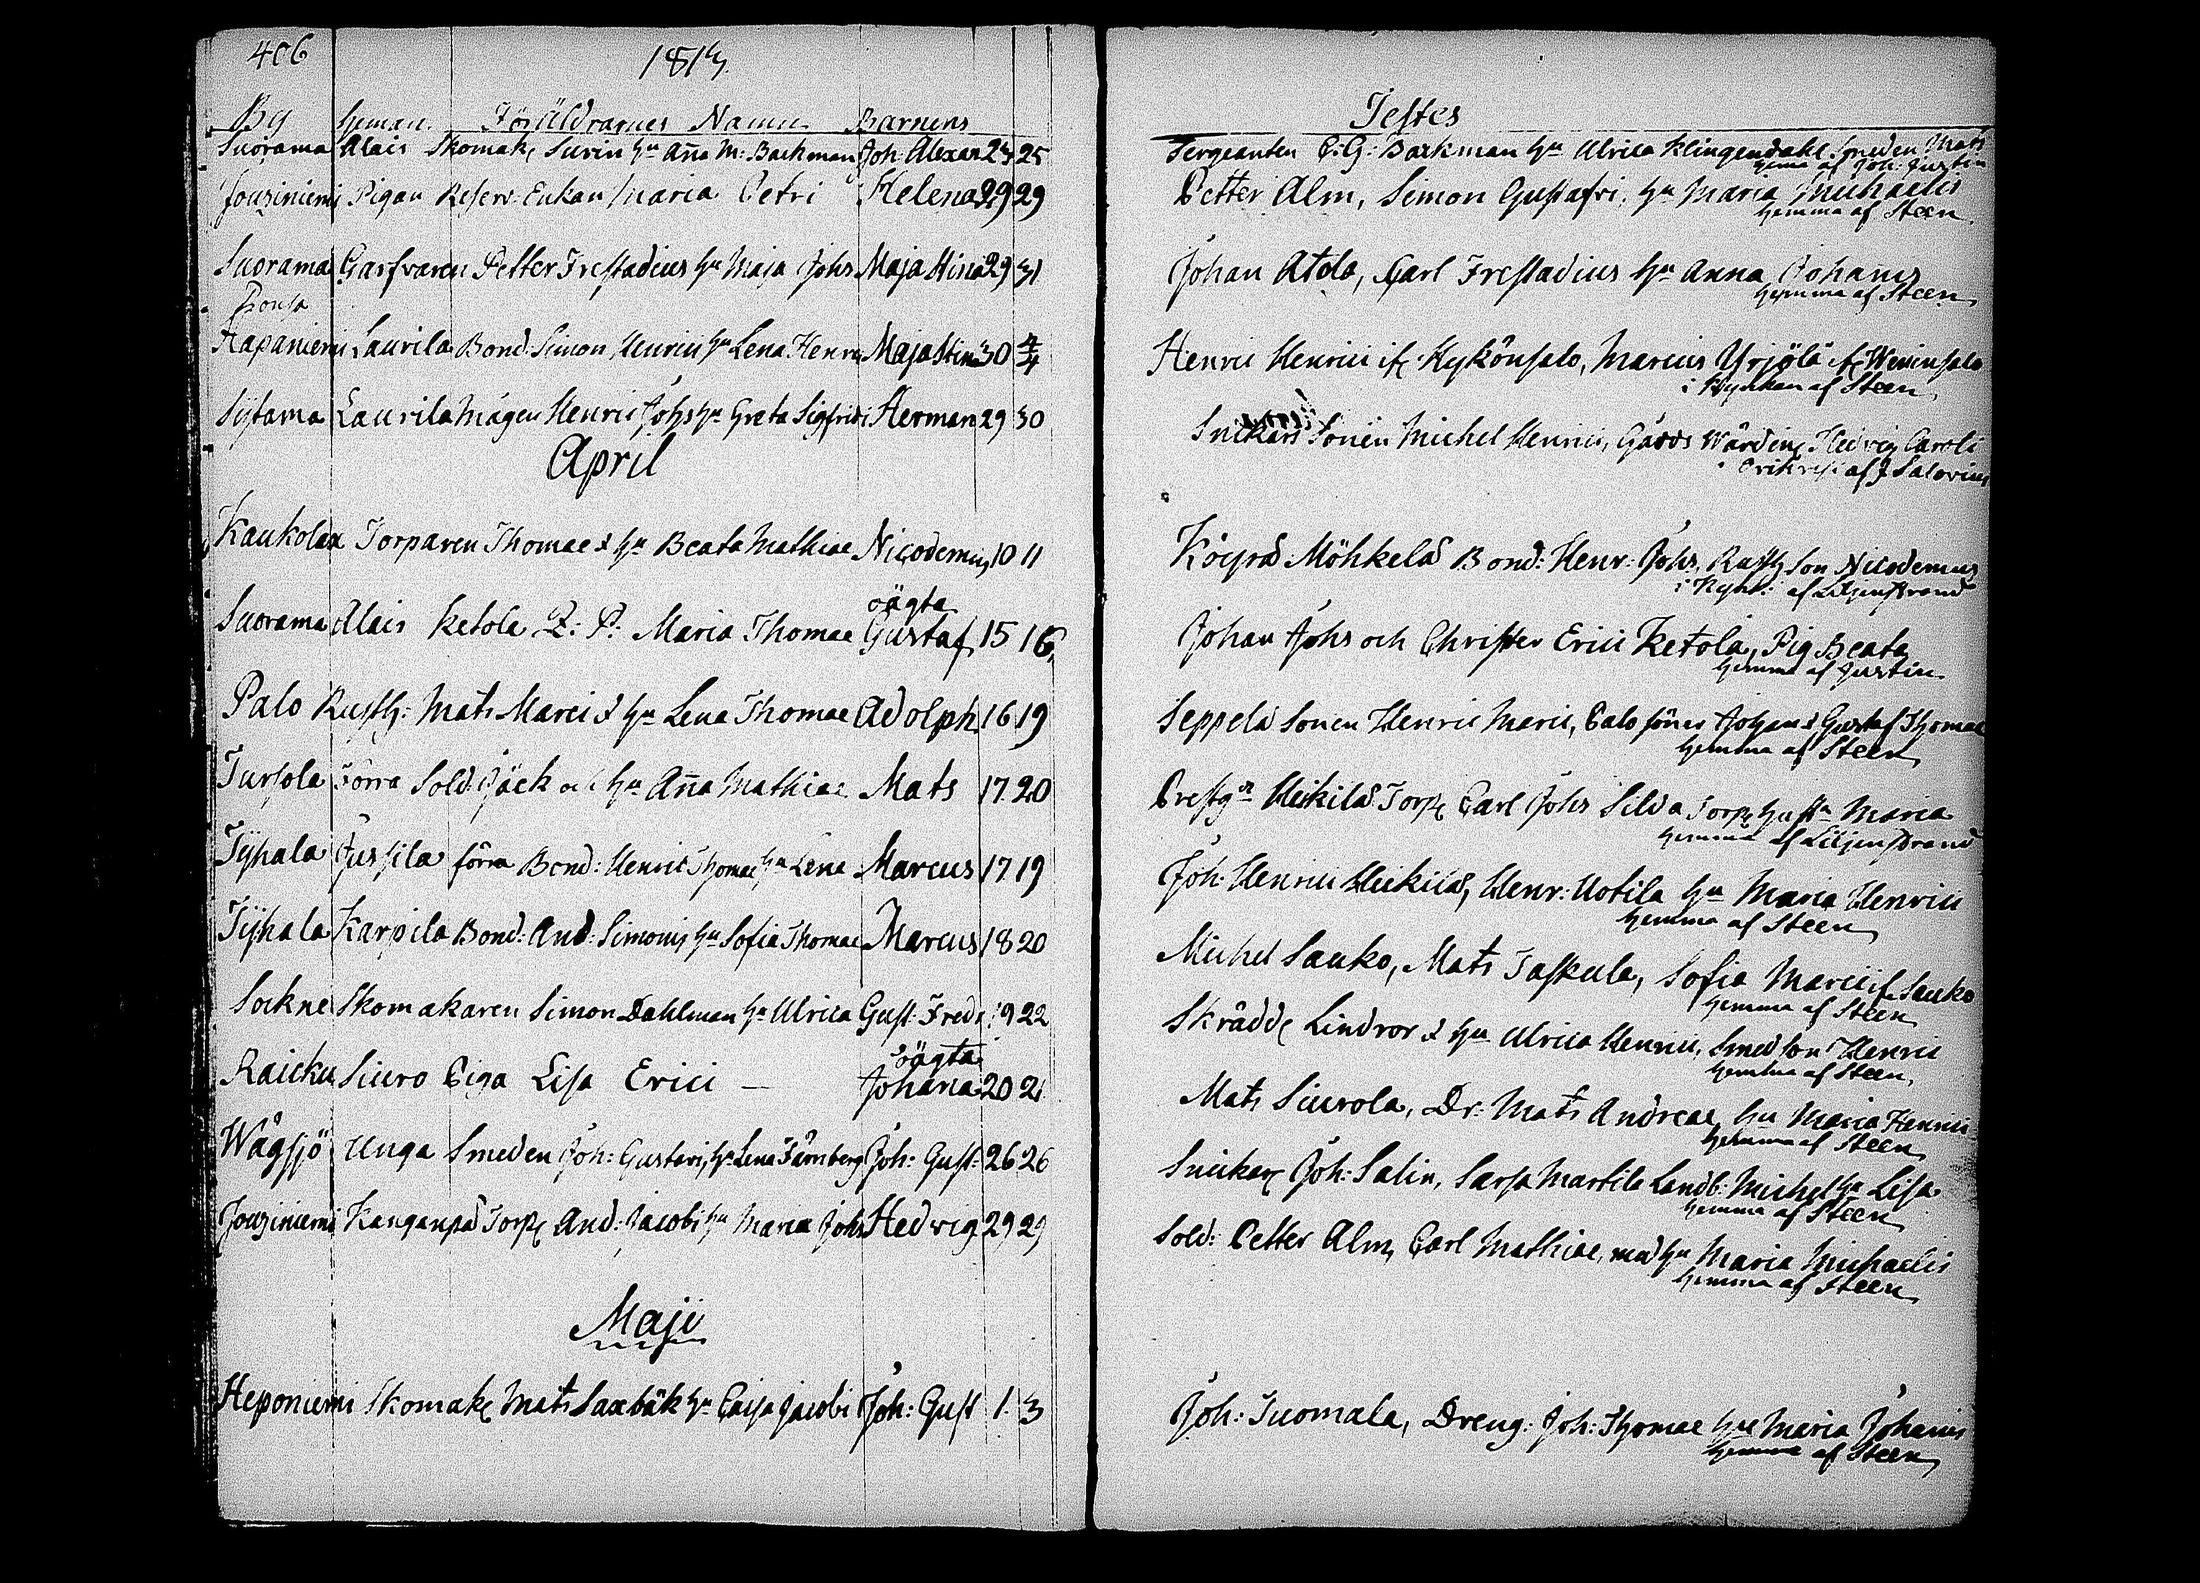 406
1813.
By Heman. Föräldrarnes Namn Barnens
Suorama Alais Skomak. Surin Hu Aña M: Backman Joh: Alexan 24 25
Jouziniemi Pigan Reserv: Enkan Maria Petri Helena 29 29
Suorama Garfvaren Petter Frestadius Hu Maja Johs Maja Stina 29 31
Ponsa
Hapaniemi Laurila Bond: Simon Henrici Hu Lena Henr Maja Stina 30 4/4
Sÿtama Laurila Mågen Henric Johs Hu Greta Sigfridi Herman 29 30
April
Kaukola Torparen Thomae & Hu Beata Mathiae Nicodemus 10 11
oägta
Suorama Alais Ketola Z: P: Maria Thomae Gustaf 15 16
Palo Rusth: Mats Marci & Hu Lena Thomae Adolph 16 19
Tursola Förra Sold: Jäck och Hu Aña Mathiae Mats 17 20
Tÿhala Jussila förra Bond: Henric Thomae Hu Lena Marcus 17 19
Tÿhala Karpila Bond: And: Simonis Hu Sofia Thomae Marcus 18 20
Sockne Skomakaren Simon Dahlman Hu Ulrica Gust: Fredr 19 22
oägta
Raicku Siuro Piga Lisa Erici — Johana 20 21
Wågsjö Unga Smeden Joh: Gustavi, Hu Lena Färnberg Joh: Gust: 26 26
Jouziniemi Kangaspä Torp. And: Jacobi Hu Maria Johs Hedvig 29 29
Maji
Heponiemi Skomak. Mats Saxbäk Hu Caisa Jacobi Joh: Gust 1 3
Testes
Sergeanten C: G: Backman Hu Ulrica Klingendahl. Smeden Mats
hemma af Joh: Justin
Petter Alm, Simon Gustafri, Hu Maria Michaelis
hemma af Steen
Johan Atola, Carl Frestadius Hu Anna Johanis
hemma af Steen
Henric Henrici if. Kykönsalo, Marcus Yrjölä if. Wenunsalo
i Kyrkan af Steen
Snickars Sonen Michel Henrici, Gårds Wärdin. Hedvig Caroli
af J Salovius
Köyrä Möhkeläs Bond: Henr: Johs, Rusth Son Nicodemus
i Kyrk: af Liljenstrand
Johan Johs och Christer Erici Ketola, Pig Beata
hemma af Justin
Seppelä Sonen Henric Maris, Palo söner Johan & Gustaf Thomae
hemma af Steen
Prestg:s Heikiläs Torp. Carl Johs Silda Torp. Hustr Maria
hemma af Liljenstrand
Joh: Henrici Heikiläs, Henr: Uotila Hu Maria Henrici
hemma af Steen
Michel Sauko, Mats Taskula, Sofia Marci if. Sauko
hemma af Steen
Skrädd. Lindror & Hu Ulrica Henrici, Smed son Henric
hemma af Steen
Mats Siurola, Dr: Mats Andreae, Hu Maria Henrici
hemma af Steen
Snickar. Joh: Salin, Sarsa Martila Landb: Michel Hu Lisa
hemma af Steen
Sold: Petter Alm, Carl Mathiae, med Hu Maria Michaelis
hemma af Steen
Joh: Tuomala, Dreng: Joh: Thomae Hu Maria Johanis
hemma af Steen